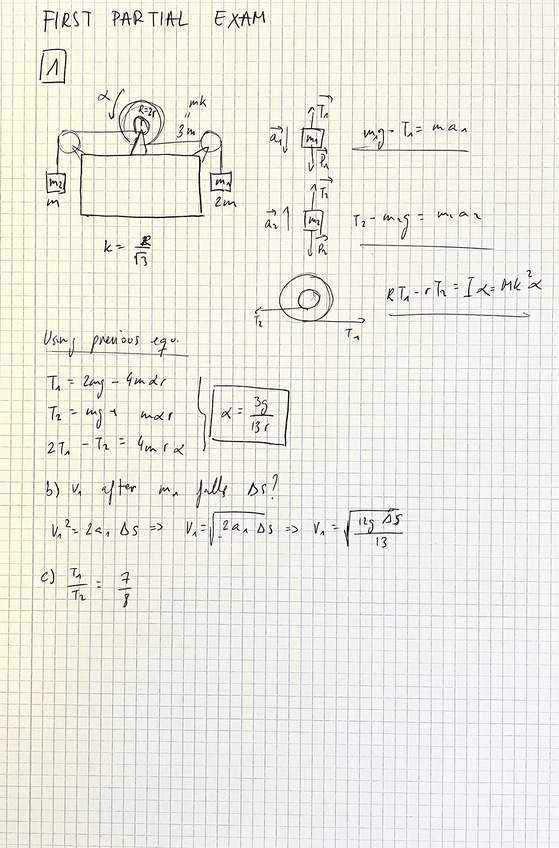 FIRST PARTIAL EXAM
1
α
R=2r
mk
"
3m
m2
m
m1
2m
k = R/√3
T1
a1 ↓ m1
P1
m1g - T1 = m a1
T2
a2 ↑ m2
P2
T2 - m2g = m2 a2
T2
T1
RT1 - rT2 = I α = Mk²α
Using previous equ.
T1 = 2mg - 4mαr
T2 = mg + mαr
2T1 - T2 = 4mrα
α = 3g/13r
b) v1 after m1 falls ΔS?
v1² = 2a1 ΔS => v1 = √2a1 ΔS => v1 = √12g ΔS/13
c) T1/T2 = 7/8